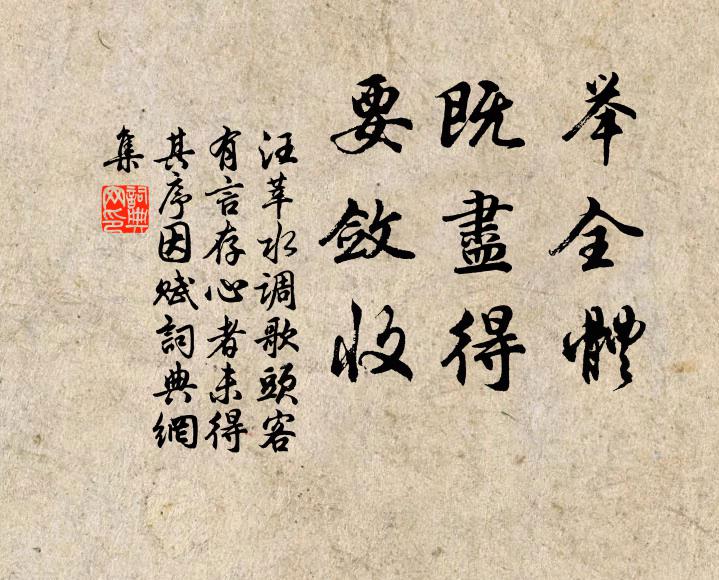 举全體
既盡得
要斂收
汪莘水调歌頭客
有言存心者未得
其序因赋詞典網
集
詞典
网印